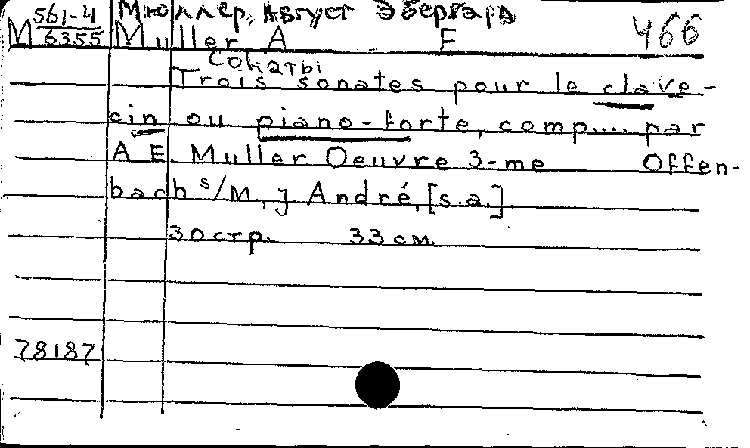 561-4 Мюллер, Август Эбергард
М 6355 Muller A E 466
Сонаты
Trois sonates pour le clave-
cin ou piano-forte, comp.... par
A E. Muller Oeuvre 3-me Offen-
bach s/M, J André, [s.a.]
30 стр. 33 см.
78187